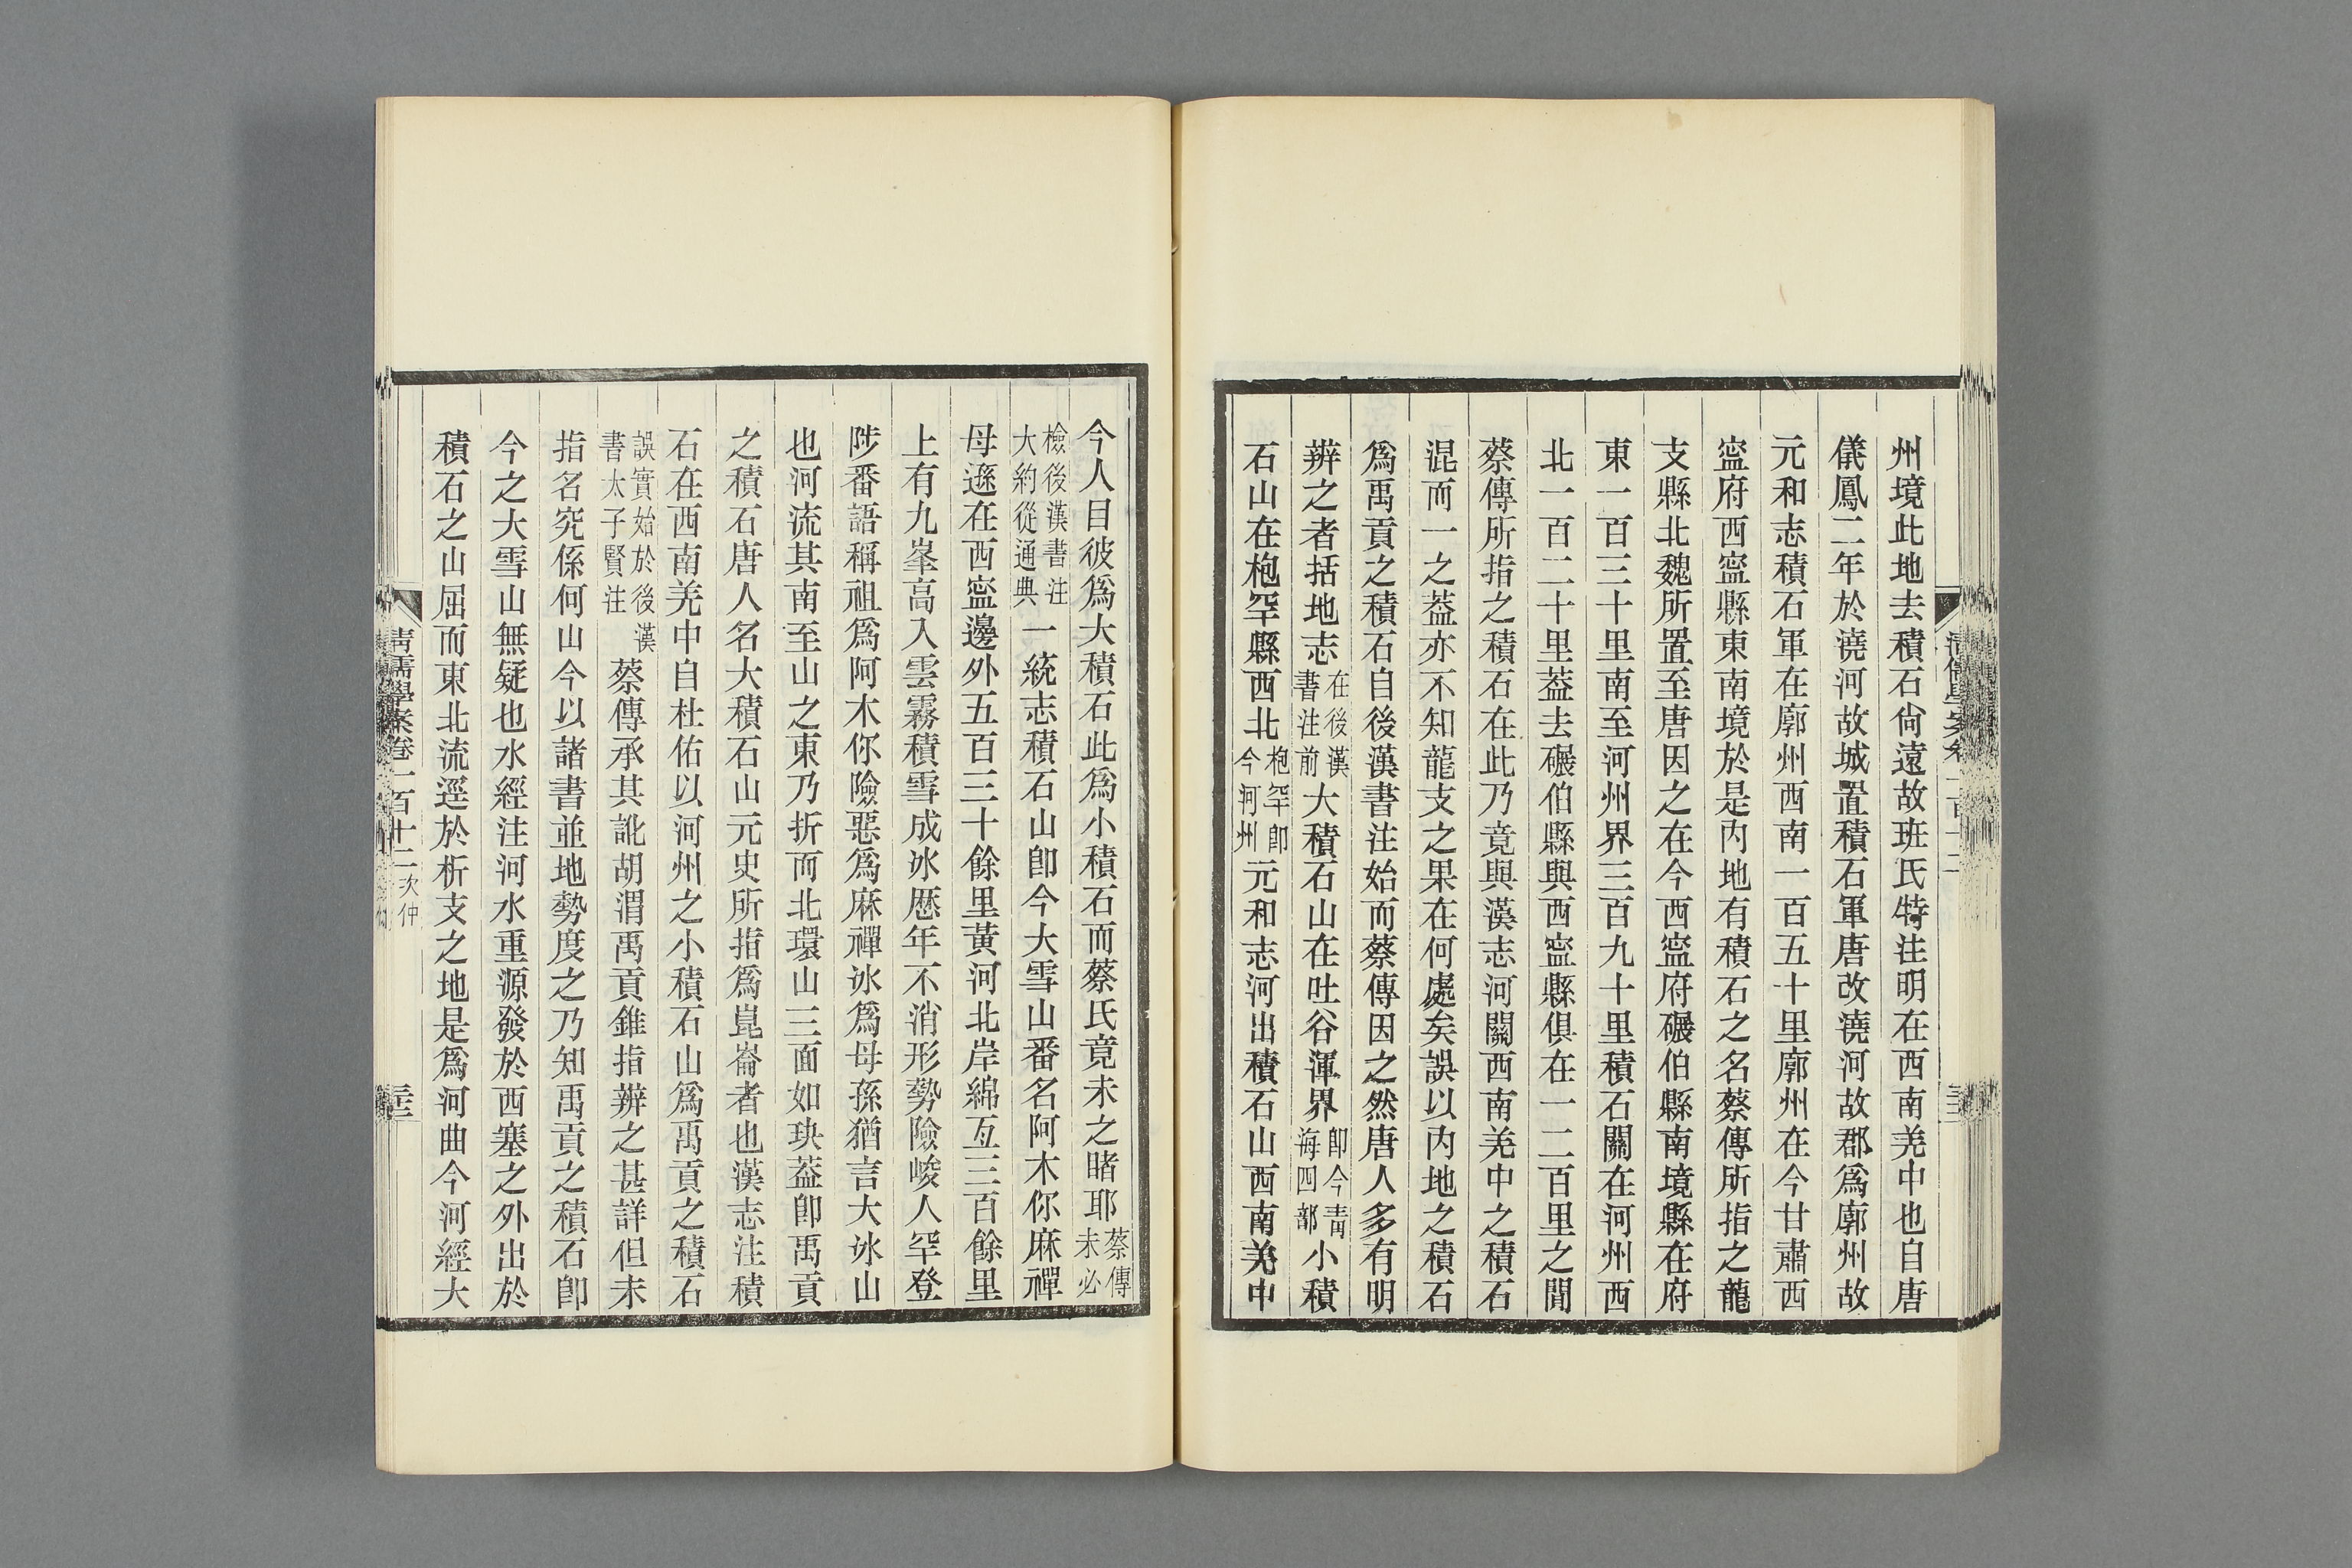 州境此地去積石尙遠故班氏特注明在西南羌中也自唐
儀鳳二年於澆河故城置積石軍唐改澆河故郡爲廓州故
元和志積石軍在廓州西南一百五十里廓州在今甘肅西
寍府西寍縣東南境於是內地有積石之名蔡傳所指之龍
支縣北魏所置至唐因之在今西寍府碾伯縣南境縣在府
東一百三十里南至河州界三百九十里積石關在河州西
北一百二十里葢去碾伯縣與西寍縣俱在一二百里之閒
蔡傳所指之積石在此乃竟與漢志河關西南羌中之積石
混而一之葢亦不知龍支之果在何處矣誤以內地之積石
爲禹貢之積石自後漢書注始而蔡傳因之然唐人多有明
辨之者括地志在後漢書注前大積石山在吐谷渾界卽今青海四部小積
石山在枹罕縣西北枹罕卽今河州元和志河出積石山西南羌中
今人目彼爲大積石此爲小積石而蔡氏竟未之睹耶蔡傳未必
檢後漢書注大約從通典一統志積石山卽今大雪山番名阿木你麻禪
母遜在西寍邊外五百三十餘里黃河北岸綿亙三百餘里
上有九峯高入雲霧積雪成冰歷年不消形勢險峻人罕登
陟番語稱祖爲阿木你險惡爲麻禪冰爲母孫猶言大冰山
也河流其南至山之東乃折而北環山三面如玦葢卽禹貢
之積石唐人名大積石山元史所指爲崑崙者也漢志注積
石在西南羌中自杜佑以河州之小積石山爲禹貢之積石
誤實始於後漢書太子賢注蔡傳承其訛胡渭禹貢錐指辨之甚詳但未
指名究係何山今以諸書並地勢度之乃知禹貢之積石卽
今之大雪山無疑也水經注河水重源發於西塞之外出於
積石之山屈而東北流逕於析支之地是爲河曲今河經大
清儒學案卷一百十二 次仲 三三